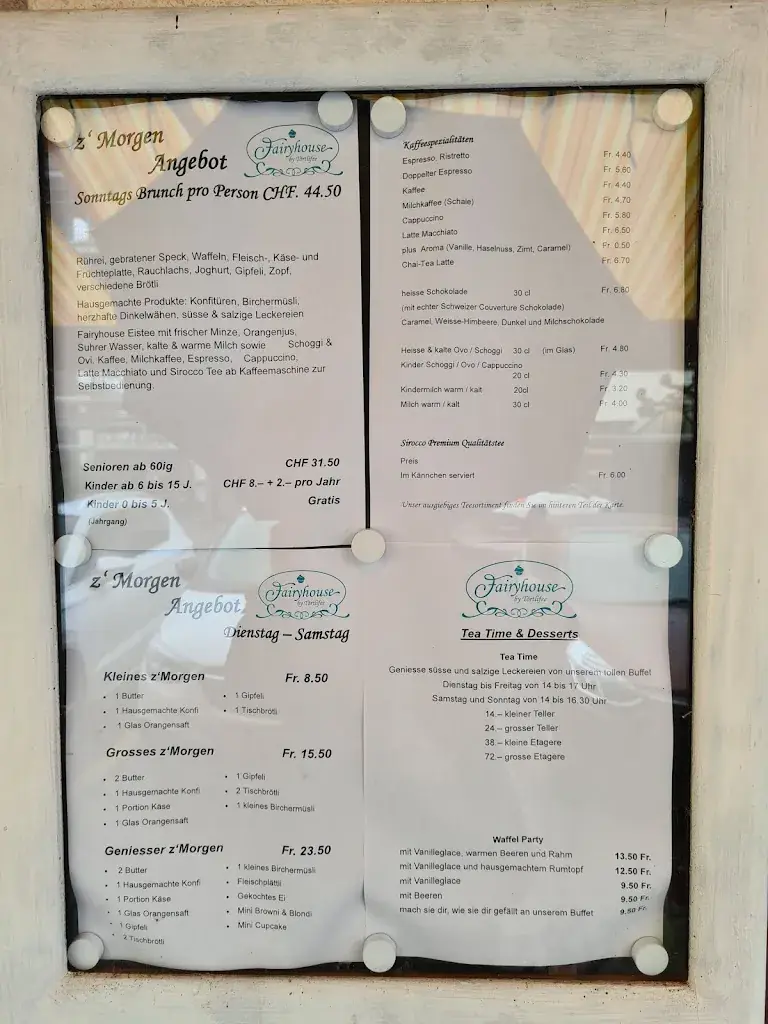 z' Morgen
Angebot
Fairyhouse
by Törtlifee
Sonntags Brunch pro Person CHF. 44.50
Rührei, gebratener Speck, Waffeln, Fleisch-, Käse- und
Früchteplatte, Rauchlachs, Joghurt, Gipfeli, Zopf,
verschiedene Brötli
Hausgemachte Produkte: Konfitüren, Birchermüsli,
herzhafte Dinkelwähen, süsse & salzige Leckereien
Fairyhouse Eistee mit frischer Minze, Orangenjus,
Suhrer Wasser, kalte & warme Milch sowie Schoggi &
Ovi. Kaffee, Milchkaffee, Espresso, Cappuccino,
Latte Macchiato und Sirocco Tee ab Kaffeemaschine zur
Selbstbedienung.
Senioren ab 60ig CHF 31.50
Kinder ab 6 bis 15 J. CHF 8.– + 2.– pro Jahr
Kinder 0 bis 5 J. Gratis
(Jahrgang)
Kaffeespezialitäten
Espresso, Ristretto Fr. 4.40
Doppelter Espresso Fr. 5.60
Kaffee Fr. 4.40
Milchkaffee (Schale) Fr. 4.70
Cappuccino Fr. 5.80
Latte Macchiato Fr. 6.50
plus Aroma (Vanille, Haselnuss, Zimt, Caramel) Fr. 0.50
Chai-Tea Latte Fr. 6.70
heisse Schokolade 30 cl Fr. 6.80
(mit echter Schweizer Couverture Schokolade)
Caramel, Weisse-Himbeere, Dunkel und Milchschokolade
Heisse & kalte Ovo / Schoggi 30 cl (im Glas) Fr. 4.80
Kinder Schoggi / Ovo / Cappuccino
20 cl Fr. 4.30
Kindermilch warm / kalt 20cl Fr. 3.20
Milch warm / kalt 30 cl Fr. 4.00
Sirocco Premium Qualitätstee
Preis
Im Kännchen serviert Fr. 6.00
Unser ausgiebiges Teesortiment finden Sie im hinteren Teil der Karte.
z' Morgen
Angebot
Fairyhouse
by Törtlifee
Dienstag – Samstag
Kleines z'Morgen Fr. 8.50
• 1 Butter • 1 Gipfeli
• 1 Hausgemachte Konfi • 1 Tischbrötli
• 1 Glas Orangensaft
Grosses z'Morgen Fr. 15.50
• 2 Butter • 1 Gipfeli
• 1 Hausgemachte Konfi • 2 Tischbrötli
• 1 Portion Käse • 1 kleines Birchermüsli
• 1 Glas Orangensaft
Geniesser z'Morgen Fr. 23.50
• 2 Butter • 1 kleines Birchermüsli
• 1 Hausgemachte Konfi • Fleischplättli
• 1 Portion Käse • Gekochtes Ei
• 1 Glas Orangensaft • Mini Browni & Blondi
• 1 Gipfeli • Mini Cupcake
• 2 Tischbrötli
Fairyhouse
by Törtlifee
Tea Time & Desserts
Tea Time
Geniesse süsse und salzige Leckereien von unserem tollen Buffet
Dienstag bis Freitag von 14 bis 17 Uhr
Samstag und Sonntag von 14 bis 16.30 Uhr
14.– kleiner Teller
24.– grosser Teller
38.– kleine Etagere
72.– grosse Etagere
Waffel Party
mit Vanilleglace, warmen Beeren und Rahm 13.50 Fr.
mit Vanilleglace und hausgemachtem Rumtopf 12.50 Fr.
mit Vanilleglace 9.50 Fr.
mit Beeren 9.50 Fr.
mach sie dir, wie sie dir gefällt an unserem Buffet 9.50 Fr.